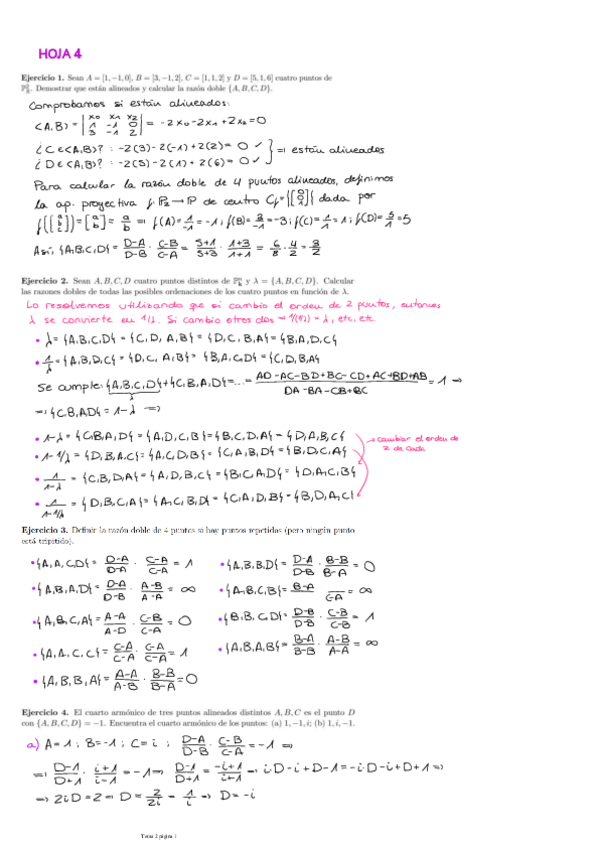 HOJA 4
Ejercicio 1. Sean A = [1, −1, 0], B = [3, −1, 2], C = [1, 1, 2] y D = [5, 1, 6] cuatro puntos de
ℙ²ℝ. Demostrar que están alineados y calcular la razón doble {A, B, C, D}.
Comprobamos si están alineados:
<A,B> = |x0 x1 x2; 1 -1 0; 3 -1 2| = -2x0 -2x1 +2x2 = 0
¿C∈<A,B>? : -2(3) -2(-1) +2(2) = 0 ✓
¿D∈<A,B>? : -2(5) -2(1) +2(6) = 0 ✓ } ⇒ están alineados
Para calcular la razón doble de 4 puntos alineados, definimos
la ap. proyectiva f: P2 → P de centro Cf = {[0 0 1]} dada por
f([a b c]) = [a b] = a/b ⇒ f(A) = 1/-1 = -1; f(B) = 3/-1 = -3; f(C) = 1/1 = 1; f(D) = 5/1 = 5
Así, {A,B,C,D} = D-A/D-B · C-B/C-A = 5+1/5+3 · 1+3/1+1 = 6/8 · 4/2 = 3/2
Ejercicio 2. Sean A, B, C, D cuatro puntos distintos de ℙⁿₖ y λ = {A, B, C, D}. Calcular
las razones dobles de todas las posibles ordenaciones de los cuatro puntos en función de λ.
Lo resolvemos utilizando que si cambio el orden de 2 puntos, entonces
λ se convierte en 1/λ. Si cambio otros dos → 1/(1/λ) = λ, etc, etc.
• λ = {A,B,C,D} = {C,D,A,B} = {D,C,B,A} = {B,A,D,C}
• 1/λ = {A,B,D,C} = {D,C,A,B} = {B,A,C,D} = {C,D,B,A}
Se cumple: {A,B,C,D} + {C,B,A,D} = ... = AD-AC-BD+BC-CD+AC+BD+AB / DA-BA-CB+BC = 1 ⇒
⇒ {C,B,A,D} = 1-λ ⇒
• 1-λ = {C,B,A,D} = {A,D,C,B} = {B,C,D,A} = {D,A,B,C}
→ cambiar el orden de
2 de cada
• 1-1/λ = {D,B,A,C} = {A,C,D,B} = {C,A,B,D} = {B,D,C,A}
• 1/1-λ = {C,B,D,A} = {A,D,B,C} = {B,C,A,D} = {D,A,C,B}
• 1/1-1/λ = {D,B,C,A} = {A,C,B,D} = {C,A,D,B} = {B,D,A,C}
Ejercicio 3. Definir la razón doble de 4 puntos si hay puntos repetidos (pero ningún punto
está tripitido).
• {A,A,C,D} = D-A/D-A · C-A/C-A = 1
• {A,B,B,D} = D-A/D-B · B-B/B-A = 0
• {A,B,A,D} = D-A/D-B · A-B/A-A = ∞
• {A,B,C,B} = B-A / C-A = ∞
• {A,B,C,A} = A-A/A-D · C-B/C-A = 0
• {B,B,C,D} = D-B/D-B · C-B/C-B = 1
• {A,A,C,C} = C-A/C-A · C-A/C-A = 1
• {A,B,A,B} = B-A/B-B · A-B/A-A = ∞
• {A,B,B,A} = A-A/A-B · B-B/B-A = 0
Ejercicio 4. El cuarto armónico de tres puntos alineados distintos A, B, C es el punto D
con {A, B, C, D} = −1. Encuentra el cuarto armónico de los puntos: (a) 1, −1, i; (b) 1, i, −1.
a) A = 1; B = -1; C = i ; D-A/D-B · C-B/C-A = -1 ⇒
⇒ D-1/D+1 · i+1/i-1 = -1 ⇒ D-1/D+1 = -i+1/i+1 ⇒ i·D-i+D-1 = -i·D-i+D+1 ⇒
⇒ 2iD = 2 ⇒ D = 2/2i = 1/i ⇒ D = -i
Tema 2 página 1